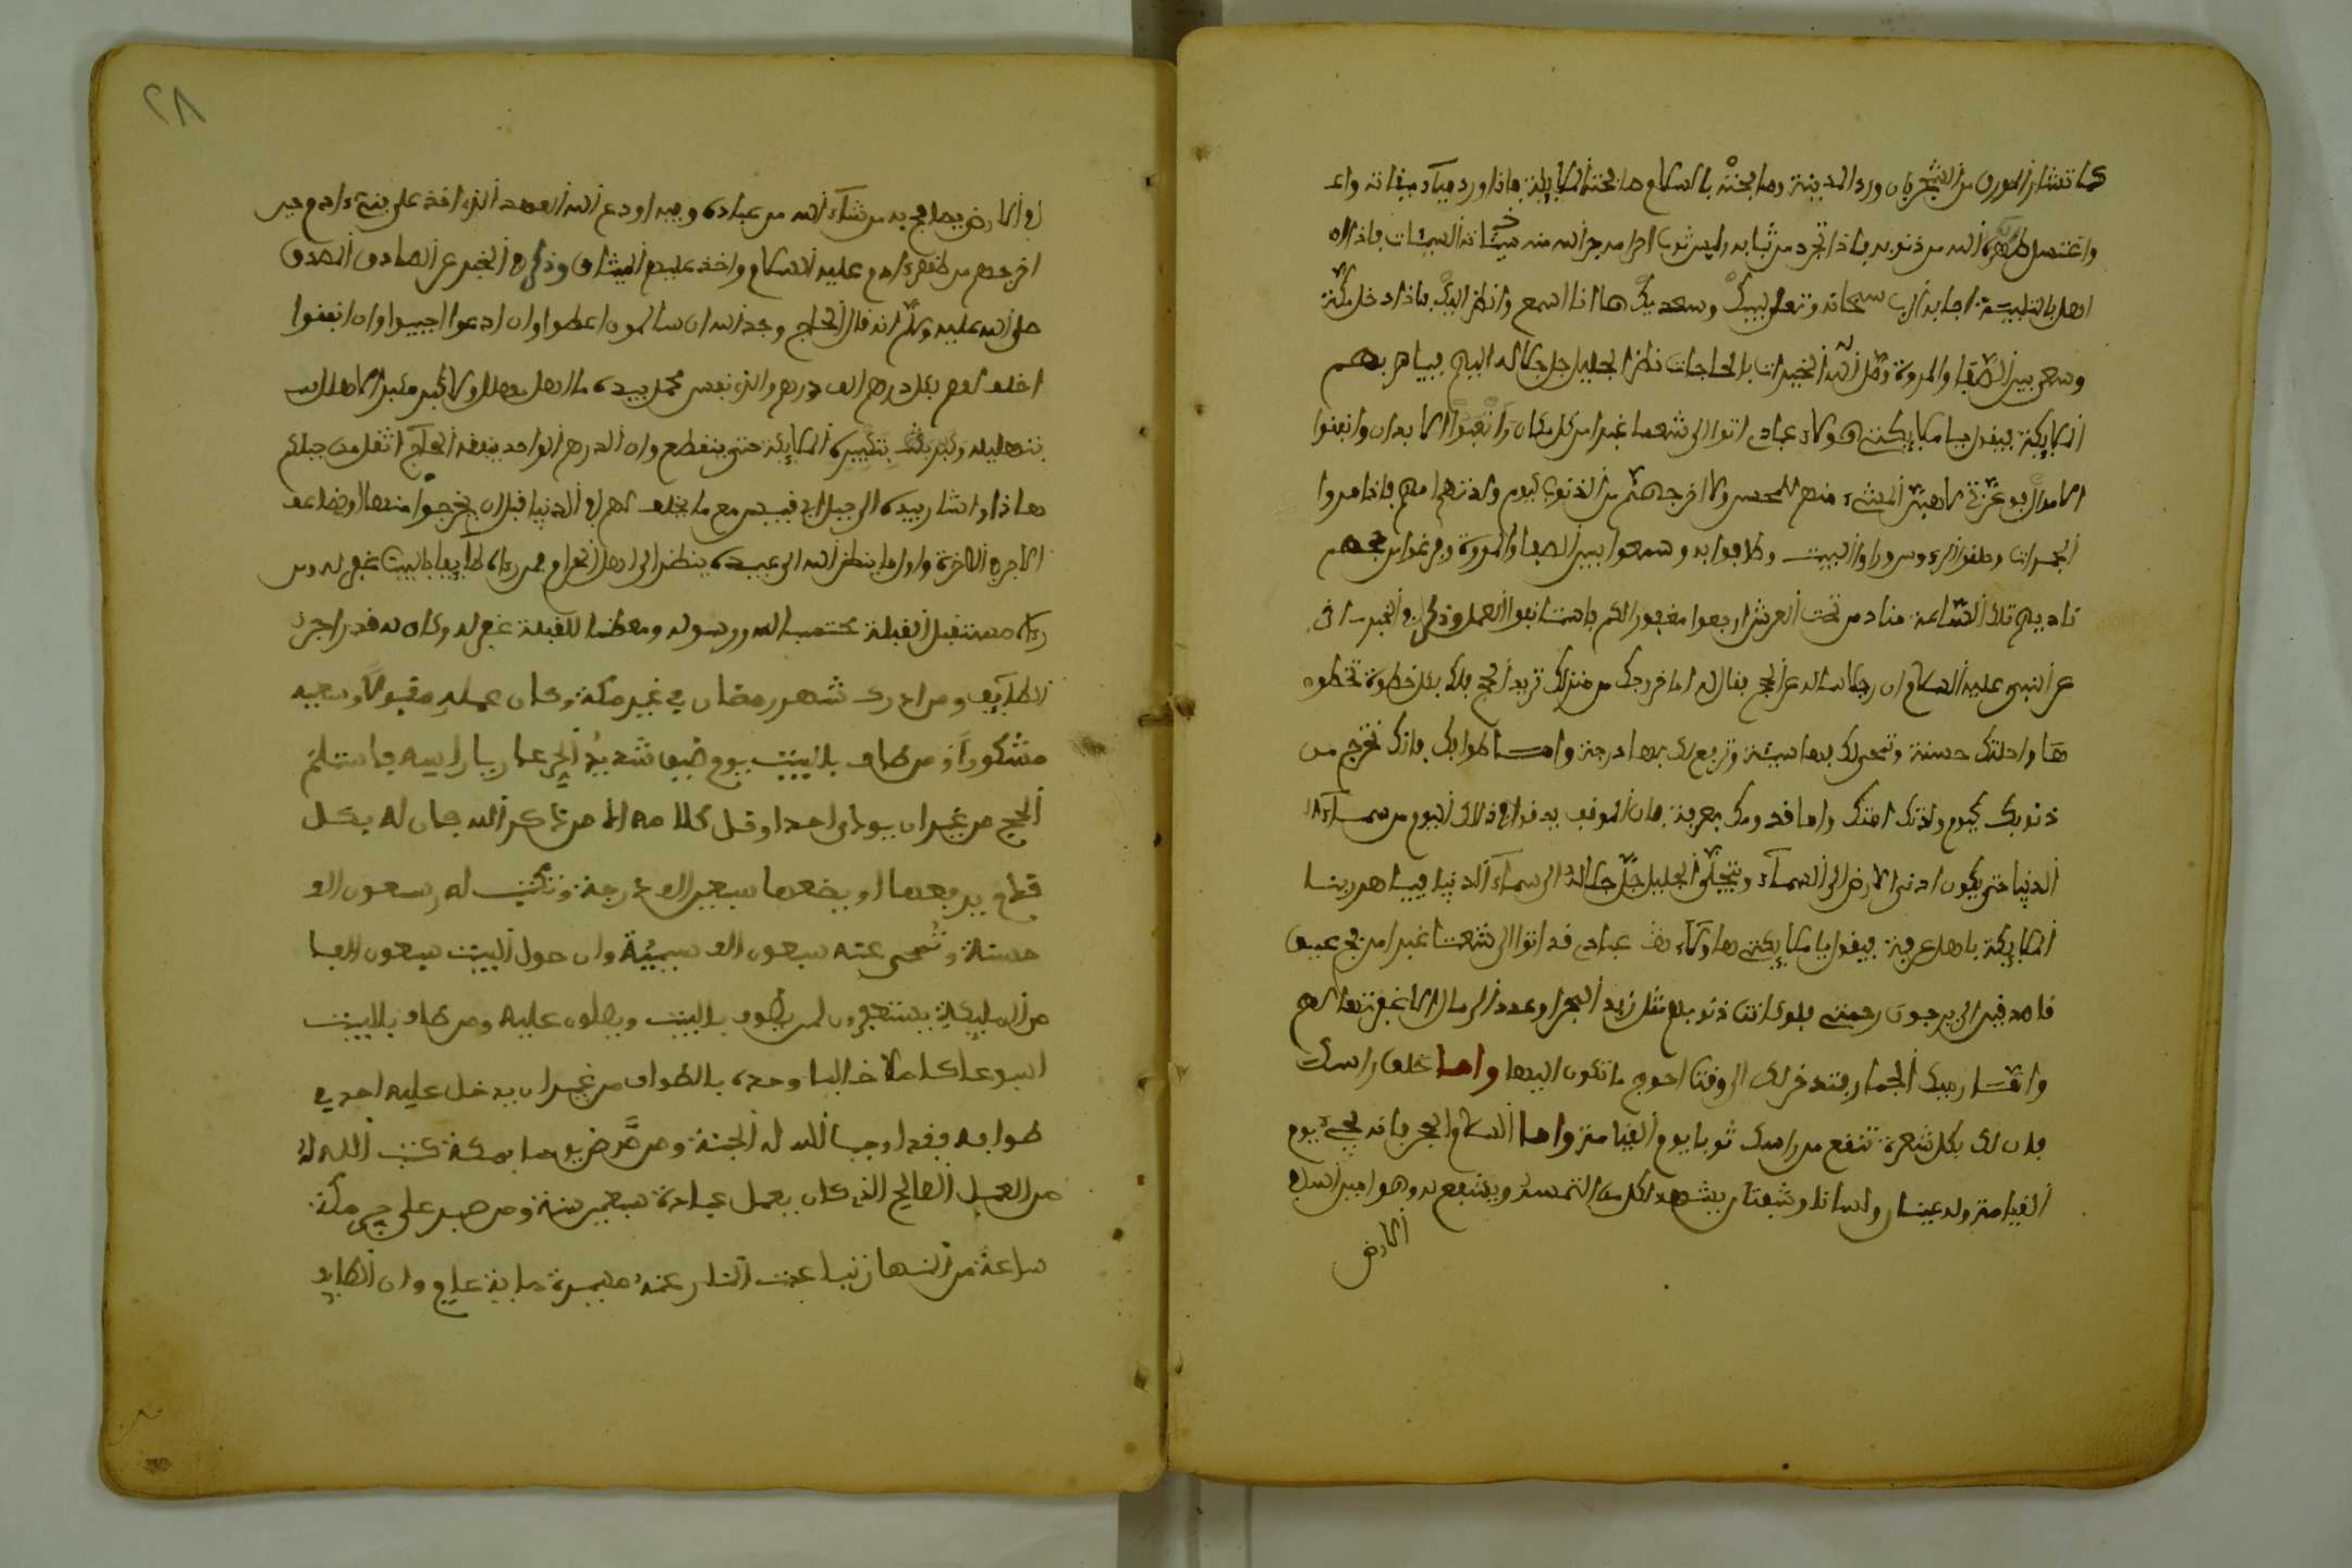 كما تتناثر الورق من الشجر فان ورد المدينة وصافحته بالسلام صافحته الملايكة فاذا ورد ميقاته واغـ
واغتسل طهره الله من ذنوبه فاذا تجرد من ثيابه ولبس ثوب احرامه جرد الله منه خبيثاته السيئات فاذا
اهل بالتلبية اجابه الرب سبحانه وتعلى لبيك وسعديك ها انا اسمع وانظر اليك فاذا دخل مكة
وسعى بين الصفا والمروة وصل الله الخيرات بالحاجات نظر الجليل جل جلاله اليهم فيباهي بهم
الملايكة فيقول يا ملايكتي هولاء عبادي اتوا الي شعثا غبرا من كل مكان وانصبوا الابدان وانفقوا
الاموال فوعزتي لاهبن المسيء منهم للمحسن ولاخرجنهم من الذنوب كيوم ولدتهم امهم فاذا رموا
الجمرات وحلقوا الرءوس وزاروا البيت وطافوا به وسعوا بين الصفا والمروة وفرغوا من حجهم
ناديهم تلك الساعة مناد من تحت العرش ارجعوا مغفورا لكم فاستانفوا العمل وذكر في الخبر
عن النبي عليه السلام ان رجلا ساله عن الحج فقال له اما خروجك من منزلك تريد الحج فلك بكل خطوة تخطوه
ها راحلتك حسنة وتمحى لك بها سيئة وترفع لك بها درجة واما طوافك فانك تخرج من
ذنوبك كيوم ولدتك امك واما قدومك بعرفة فان الموقف يدنوا في ذلك اليوم من سماء
الدنيا حتى يكون ادنى الارض الى السماء ويتجلى الجليل جل جلاله الى سماء الدنيا فيباهي ربنا
الملايكة باهل عرفة فيقول يا ملايكتي هاولاء عبادي قد اتوا الي شعثا غبرا من فج عميق
قاصدين الي يرجون رحمتي فلو كانت ذنوبهم مثل زبد البحر او عدد الرمال الا غفرتها لهم
واما رميك الجمار فتدخر لك الى وقت احوج ما تكون اليها واما حلق راسك
فان لك بكل شعرة تقع من راسك ثوبا يوم القيامة واما السلام والحجر فانه يجيء يوم
القيامة وله عينان ولسانا وشفتان يشهد لكل من التمسه ويشفع له وهو امين الله
الارض
في الارض يصافح به من شاء الله من عباده وفيه اودع الله العهد الذي اخذ على بني ءادم حين
اخرجهم من ظهر ءادم عليه السلام واخذ عليهم الميثاق وذكر في الخبر عن الصادق المصدق
صلى الله عليه وسلم انه قال الحجاج وفد الله ان سالهم اعطوا وان ادعوا اجيبوا وان انفقوا
اخلف لهم بكل درهم الف درهم والذي نفس محمد بيده ما اهل مهل ولا كبر مكبر الا هلل
بتهليله وكبر بتكبيره الملايكة حتى ينقطع وان الدرهم الواحد ينفقه الحاج اثقل من جبلكم
هاذا واشار بيده الى جبل ابي قبيس مع ما يخلف لهم في الدنيا قبل ان يخرجوا منها ويضاعف
الاجر في الاخرة واول ما ينظر الله الى عبيده ينظر الى اهل الحرام فمن رءاه طايفا بالبيت غفر له ومن
رءاه مستقبل القبلة محتسبا لله ورسوله ومعظما للقبلة غفر له وكان له قدر اجر
الطايف ومن ادرك شهر رمضان في غير مكة وكان عمله مقبولا وسعيه
مشكورا ومن طاف بالبيت يوم صيف شديد الحر عاريا راسه فاستلم
الحجر من غير ان يوذي احدا وقل كلامه الا من ذكر الله كان له بكل
قدم يرفعها او يضعها سبعين الف درجة وتكتب له سبعون الف
حسنة وتمحى عنه سبعون الف سيئة وان حول البيت سبعون الفا
من الملايكة يستغفرون لمن يطوف بالبيت ويصلون عليه ومن طاف بالبيت
اسبوعا كاملا خاليا وحده بالطواف من غير ان يدخل عليه احد في
طوافه فقد اوجب الله له الجنة ومن مرض يوما بمكة كتب الله له
من العمل الصالح الذي كان يعمل عبادة سبعين سنة ومن صبر على حر مكة
ساعة من النهار تباعدت النار عنه مسيرة ماية عام وان الطايف
٢٨